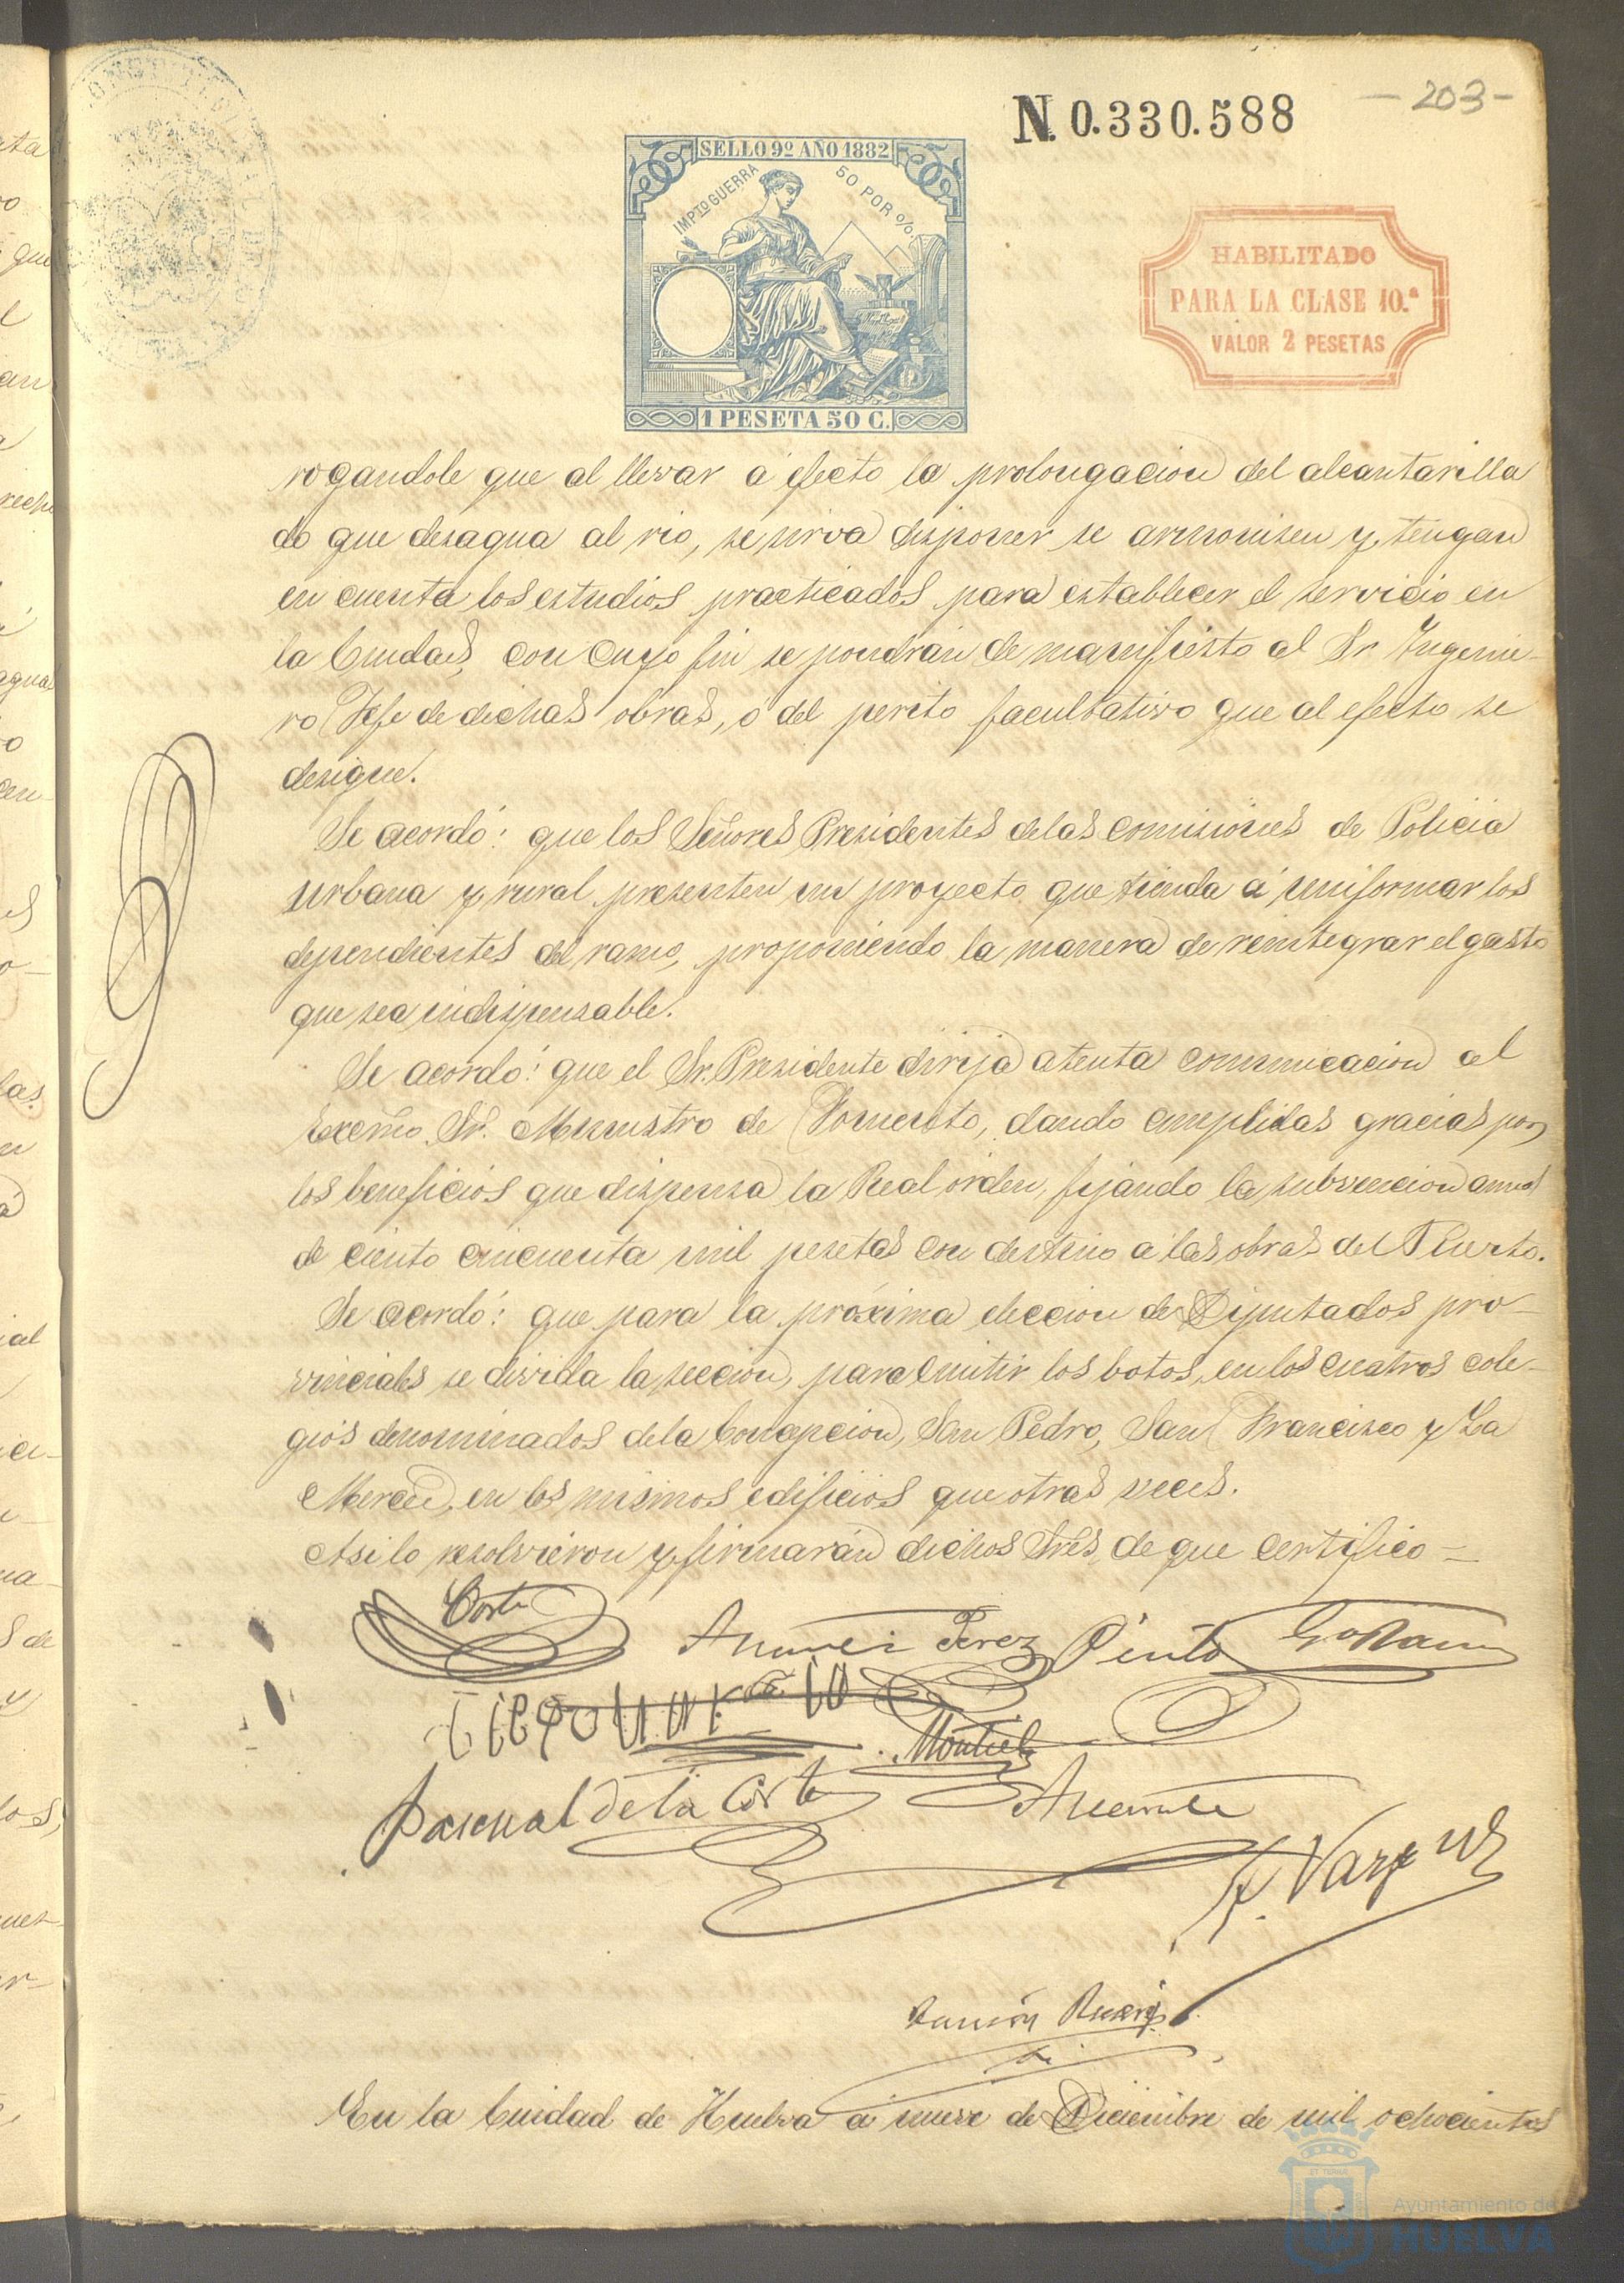 - 203 -
N. 0.330.588
SELLO 9º AÑO 1882
IMPTO GUERRA 50 POR %
1 PESETA 50 C.
HABILITADO
PARA LA CLASE 10.ª
VALOR 2 PESETAS
rogandole que al llevar á efecto la prolongacion del alcantarilla
do que desagua al rio, se sirva disponer se armonisen y tengan
en cuenta los estudios practicados para establecer el servicio en
la Ciudad, con cuyo fin se pondrán de manifiesto al Sr Ingenie-
ro Jefe de dichas obras, ó del perito facultativo que al efecto se
designe.
Se acordó: que los Señores Presidentes de las comisiones de Policia
urbana y rural presenten un proyecto que tienda á uniformar los
dependientes del ramo, proponiendo la manera de reintegrar el gasto
que sea indispensable.
Se acordó: que el Sr. Presidente dirija atenta comunicacion al
Excmo Sr. Ministro de Fomento, dando cumplidas gracias por
los beneficios que dispensa la Real orden, fijando la subvencion anual
de ciento cincuenta mil pesetas con destino a las obras del Puerto.
Se acordó: que para la próxima eleccion de Diputados pro-
vinciales se divida la seccion, para emitir los botos, en los cuatros cole-
gios denominados de la Concepcion, San Pedro, San Francisco y La
Merced, en los mismos edificios que otras veces.
Asi lo resolvieron y firmarán dichos Sres, de que certifico=
Corte Perez Pinto
Montiel
Pascual de la Corte
F. Vazquez
Ramón
En la Ciudad de Huelva á nueve de Diciembre de mil ochocientos
Ayuntamiento de
HUELVA